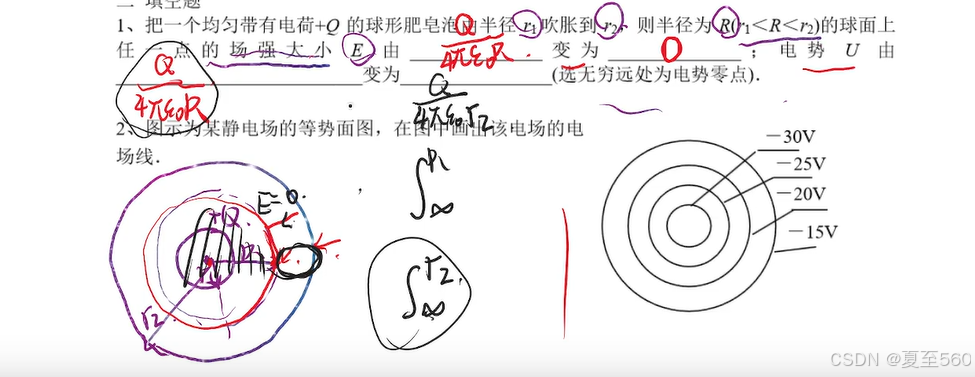 二 填空题
1、把一个均匀带有电荷+Q 的球形肥皂泡由半径 r₁吹胀到 r₂, 则半径为 R(r₁<R<r₂)的球面上
任一点的场强大小 E 由 Q/4πε₀R 变为 0 ; 电势 U 由
Q/4πε₀R 变为 Q/4πε₀r₂ (选无穷远处为电势零点).
2、图示为某静电场的等势面图,在图中画出该电场的电
场线.
-30V
-25V
-20V
-15V
E=0
+Q
r₂
∫∞
∫∞ r₂
CSDN @夏至560